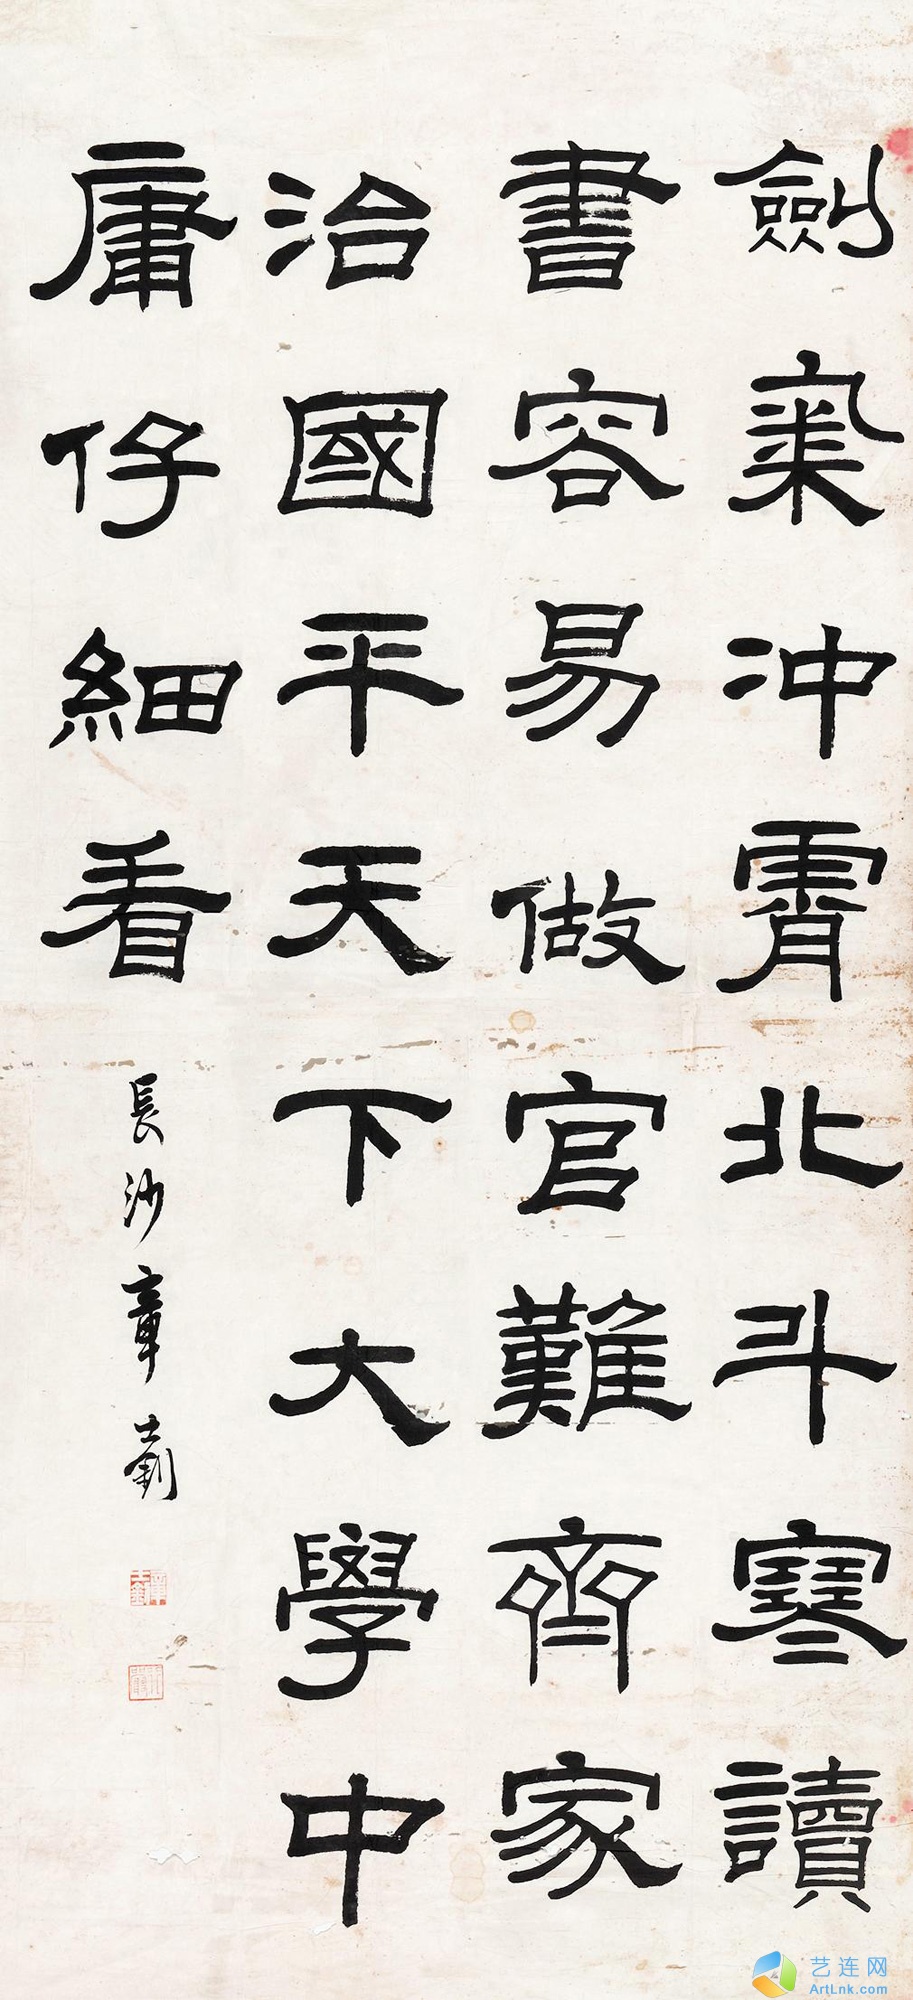 劍氣冲霄北斗寒讀
書容易做官難齊家
治國平天下大學中
庸仔細看
長沙章士釗
章士釗
艺连网
ArtLnk.com